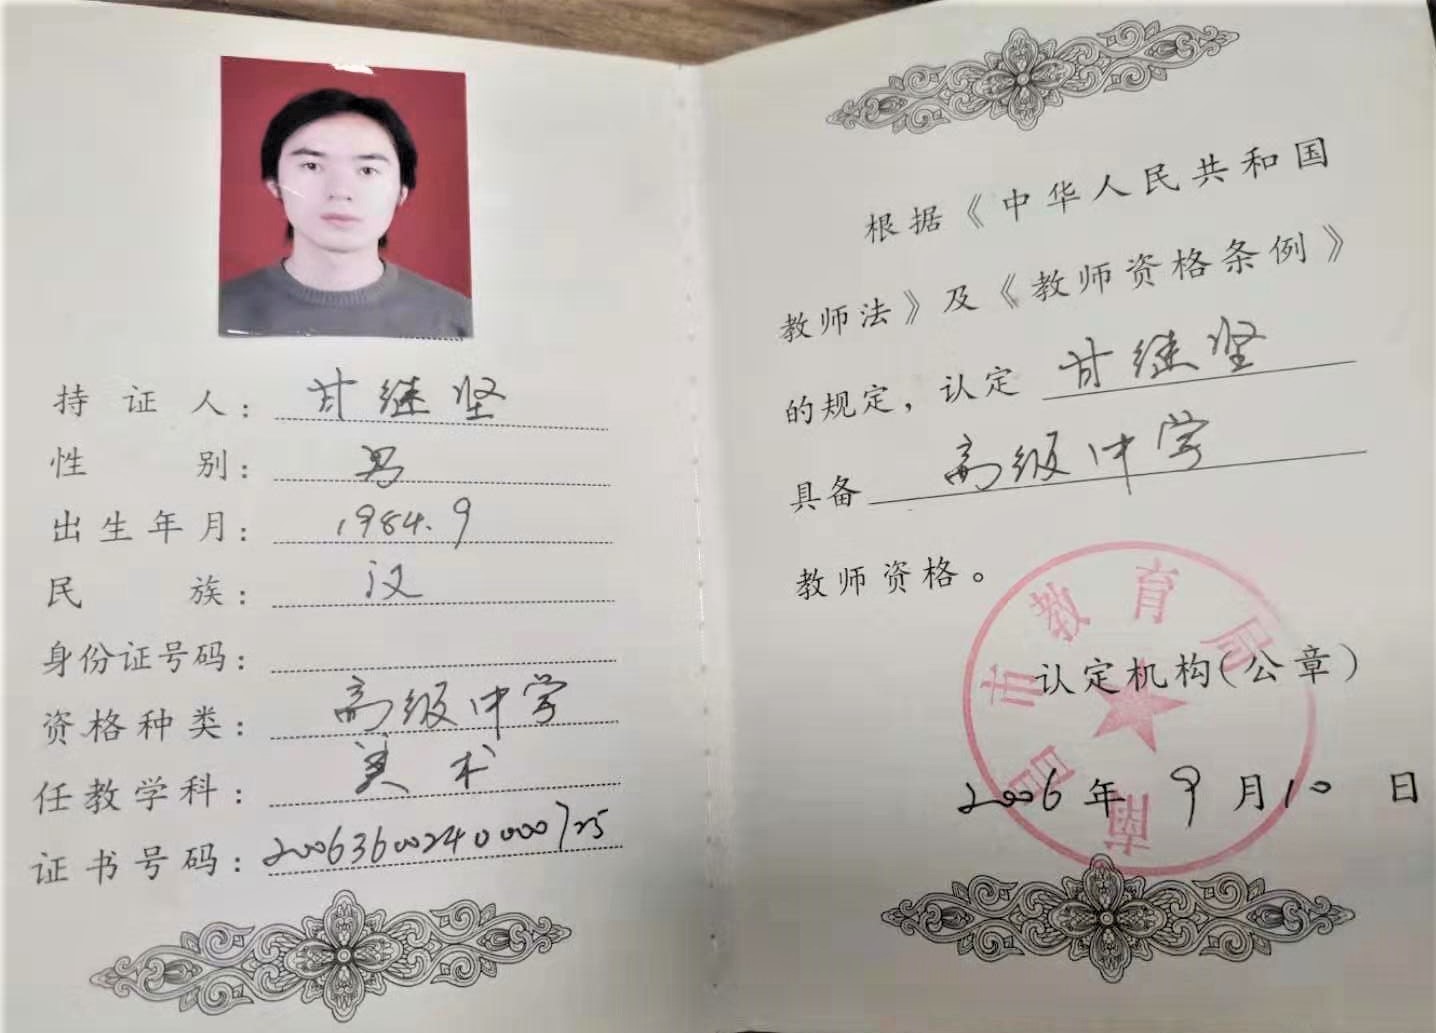 持证人：甘继坚
性别：男
出生年月：1984.9
民族：汉
身份证号码：
资格种类：高级中学
任教学科：美术
证书号码：20063600240000725
根据《中华人民共和国
教师法》及《教师资格条例》
的规定，认定 甘继坚
具备 高级中学
教师资格。
南昌市教育局
认定机构(公章)
2006年 9月10日